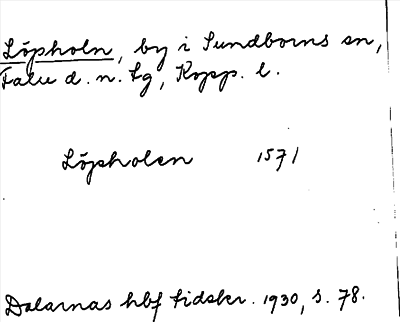 Löpholn, by i Sundborns sn,
Falu d. n. tg, Kopp. l.
Löpholen 1571
Dalarnas hbf tidskr. 1930, s. 78.